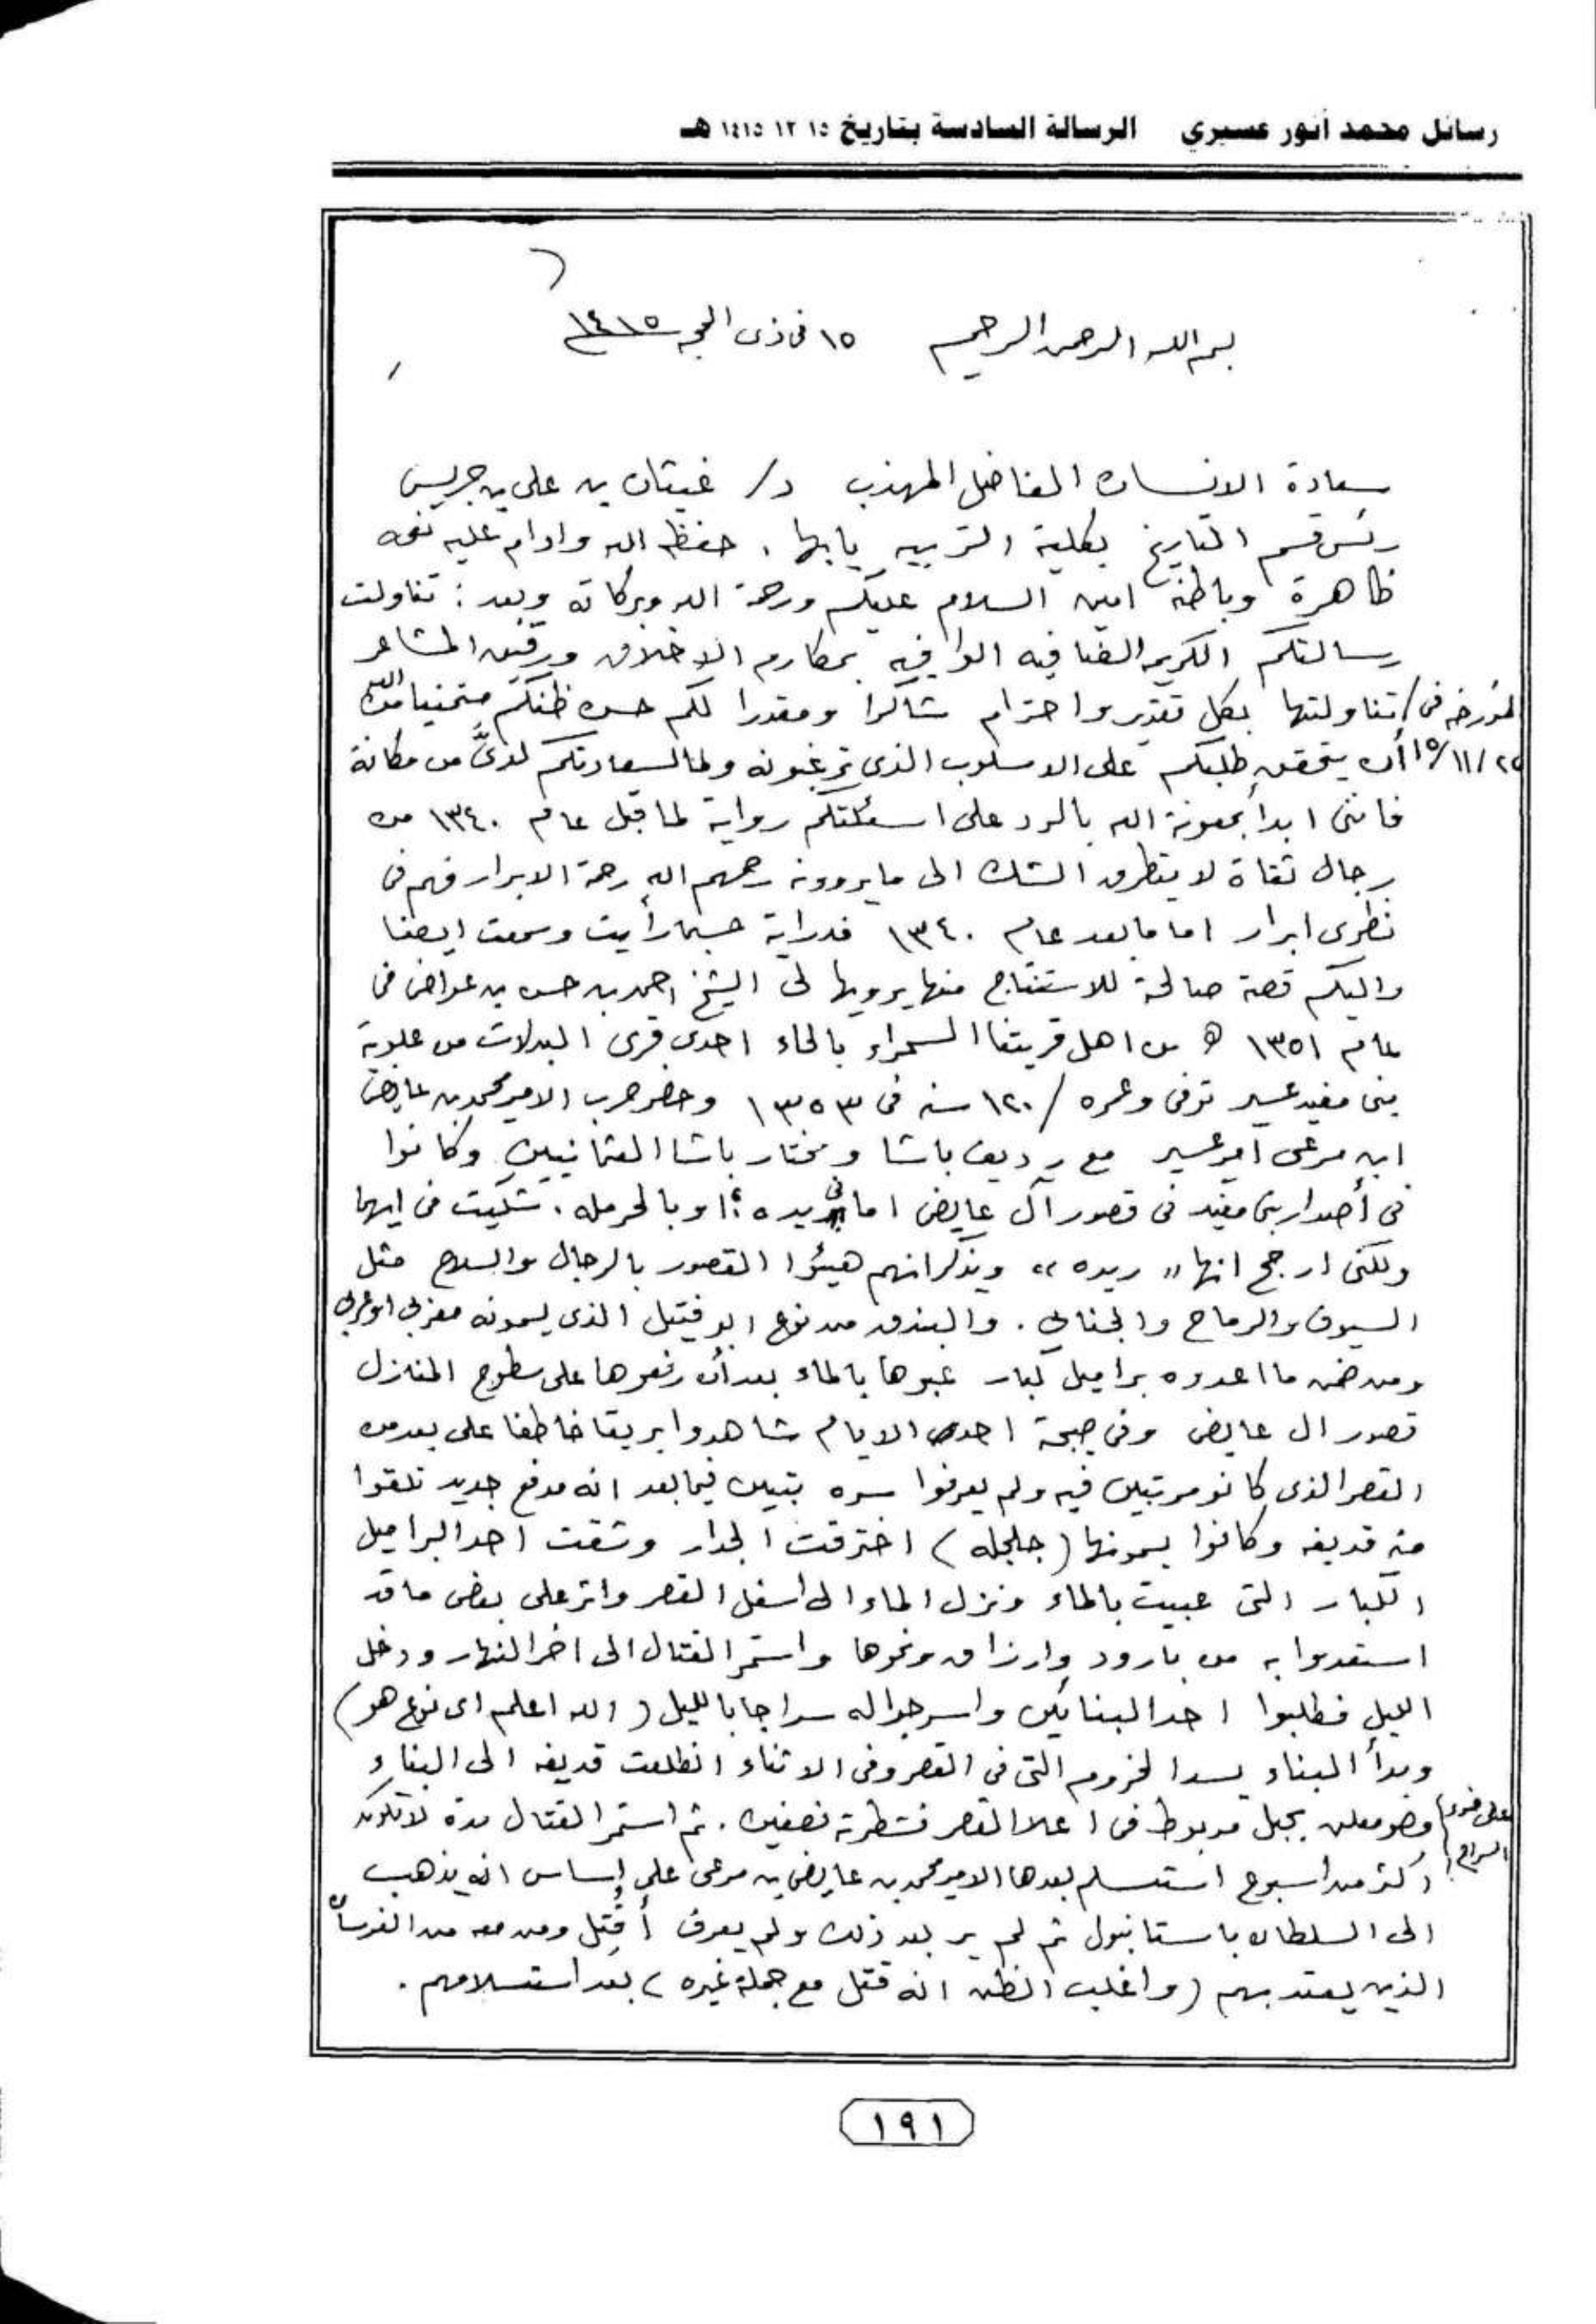 رسائل محمد أنور عسيري الرسالة السادسة بتاريخ ١٥ ١٢ ١٤١٥ هـ
٦
بسم الله الرحمن الرحيم ١٥ فى ذى الحجه ١٤١٥
سعادة الانسان الفاضل المهذب د/ غيثان بن على بن جريس
رئس قسم التاريخ بكلية التربيه بابها . حفظه الله وادام عليه نعمه
ظاهرة وباطنه امين السلام عليكم ورحمة الله وبركاته وبعد : تناولت
رسالتكم الكريمه الضافيه الوافيه بمكارم الاخلاق ورقيق المشاعر
المؤرخه فى / تناولتها بكل تقدير واحترام شاكرا ومقدرا لكم حسن ظنكم متمنيا من الله
١٥/١١/٢٧ أن يتحقق طلبكم على الاسلوب الذى ترغبونه ولما لسعادتكم لدىَّ من مكانة
فاننى ابدأ بمعونة الله بالرد على اسئلتكم رواية لما قبل عام ١٣٤٠ من
رجال ثقاة لا يتطرق الشك الى مايروونه رحمهم الله رحمة الابرار فهم فى
نظرى ابرار اما مابعد عام ١٣٤٠ فدراية حسبما رأيت وسمعت ايضا
واليكم قصة صالحة للاستنتاج منها يرويها لى الشيخ احمد بن حسن بن عواض فى
عام ١٣٥١ ه من اهل قريتنا السمراء بالحاء احدى قرى البدلات من علوية
بنى مغيد عسير توفى وعمره /١٢٠ سنه فى ١٣٥٣ وحضر حرب الامير محمد بن عايض
ابن مرعى امير عسير مع رديف باشا ومختار باشا العثمانيين وكانوا
فى أصدار بنى مغيد فى قصور آل عايض اما فى ريده ؛ او بالحرمله . شكيت فى ايهما
ولكنى ارجح انها " ريده " ويذكر انهم هيئوا القصور بالرجال والسلاح مثل
السيوف والرماح والجنابي . والبندق من نوع ابو فتيل الذى يسمونه مغربي او عربي
ومن ضمن ما اعدوه براميل كبار عبوها بالماء بعد أن رفعوها على سطوح المنازل
قصور ال عايض وفى صبحة احدى الايام شاهدوا بريقا خاطفا على بعد من
القصر الذى كانو مرتبين فيه ولم يعرفوا سره بتبين فيما بعد انه مدفع جديد تلقوا
منه قديفه وكانوا يسمونها ( جلجله ) اخترقت الجدار وشقت احد البراميل
الكبار التى عبيت بالماء ونزل الماء الى اسفل القصر واثر على بعض ما قد
استعدوا به من بارود وارزاق ونحوها واستمر القتال الى اخر النهار ودخل
الليل فطلبوا احد البنائين واسرجوا له سراجا بالليل ( الله اعلم اى نوع هو )
وبدأ البناء يسد الخروم التى فى القصر وفى الاثناء انطلعت قديفه الى البناء
على ضوء السراج ) وهو معلق بحبل مربوط فى اعلا القصر فشطرته نصفين . ثم استمر القتال مدة لاتكون
اكثر من اسبوع استسلم بعدها الامير محمد بن عايض بن مرعى على إساس انه يذهب
الى السلطان باستانبول ثم لم ير بعد ذلك ولم يعرف أقُتل ومن معه من الفرسان
الذين يعتد بهم ( واغلب الظن انه قتل مع جملة غيره ) بعد استسلامهم .
١٩١